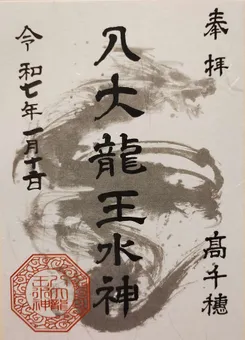 奉拝
高千穂
八大龍王水神
令和七年一月十六日